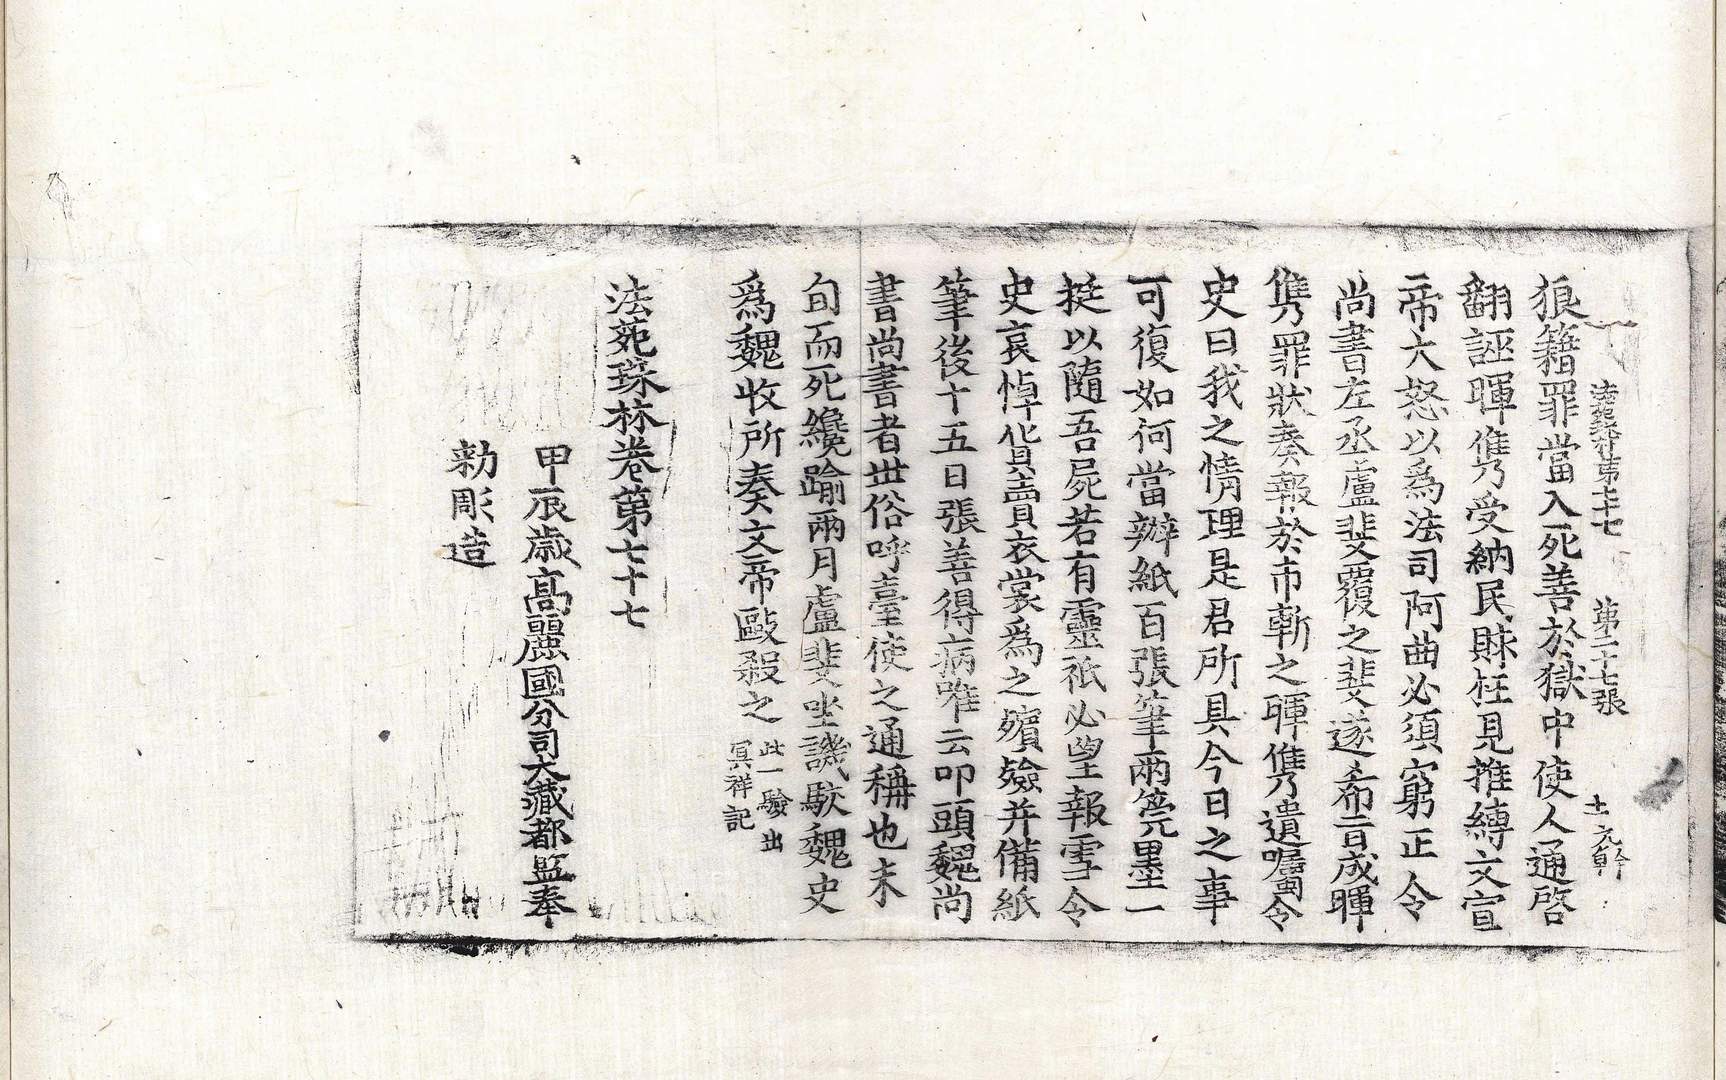 法苑第七十七 第二十七張 土 元幹
狼籍罪當入死善於獄中使人通啓
翻誣暉儁受納民賕枉見推縛文宣
帝大怒以爲法司阿曲必須窮正令
尚書左丞盧斐覆之斐遂希旨成暉
儁罪狀奏報於市斬之暉儁遺囑令
史曰我之情理是君所具今日之事
可復如何當辦紙百張筆兩管墨一
挺以隨吾屍若有靈祇必望報雪令
史哀悼貨賣衣裳爲之殯殮并備紙
筆後十五日張善得病唯云叩頭魏尚
書尚書者世俗呼臺使之通稱也未
旬而死纔踰兩月盧斐坐譏駮魏史
爲魏收所奏文帝歐殺之 此一驗出
冥祥記
法苑珠林卷第七十七
甲辰歳高麗國分司大藏都監奉
勑彫造